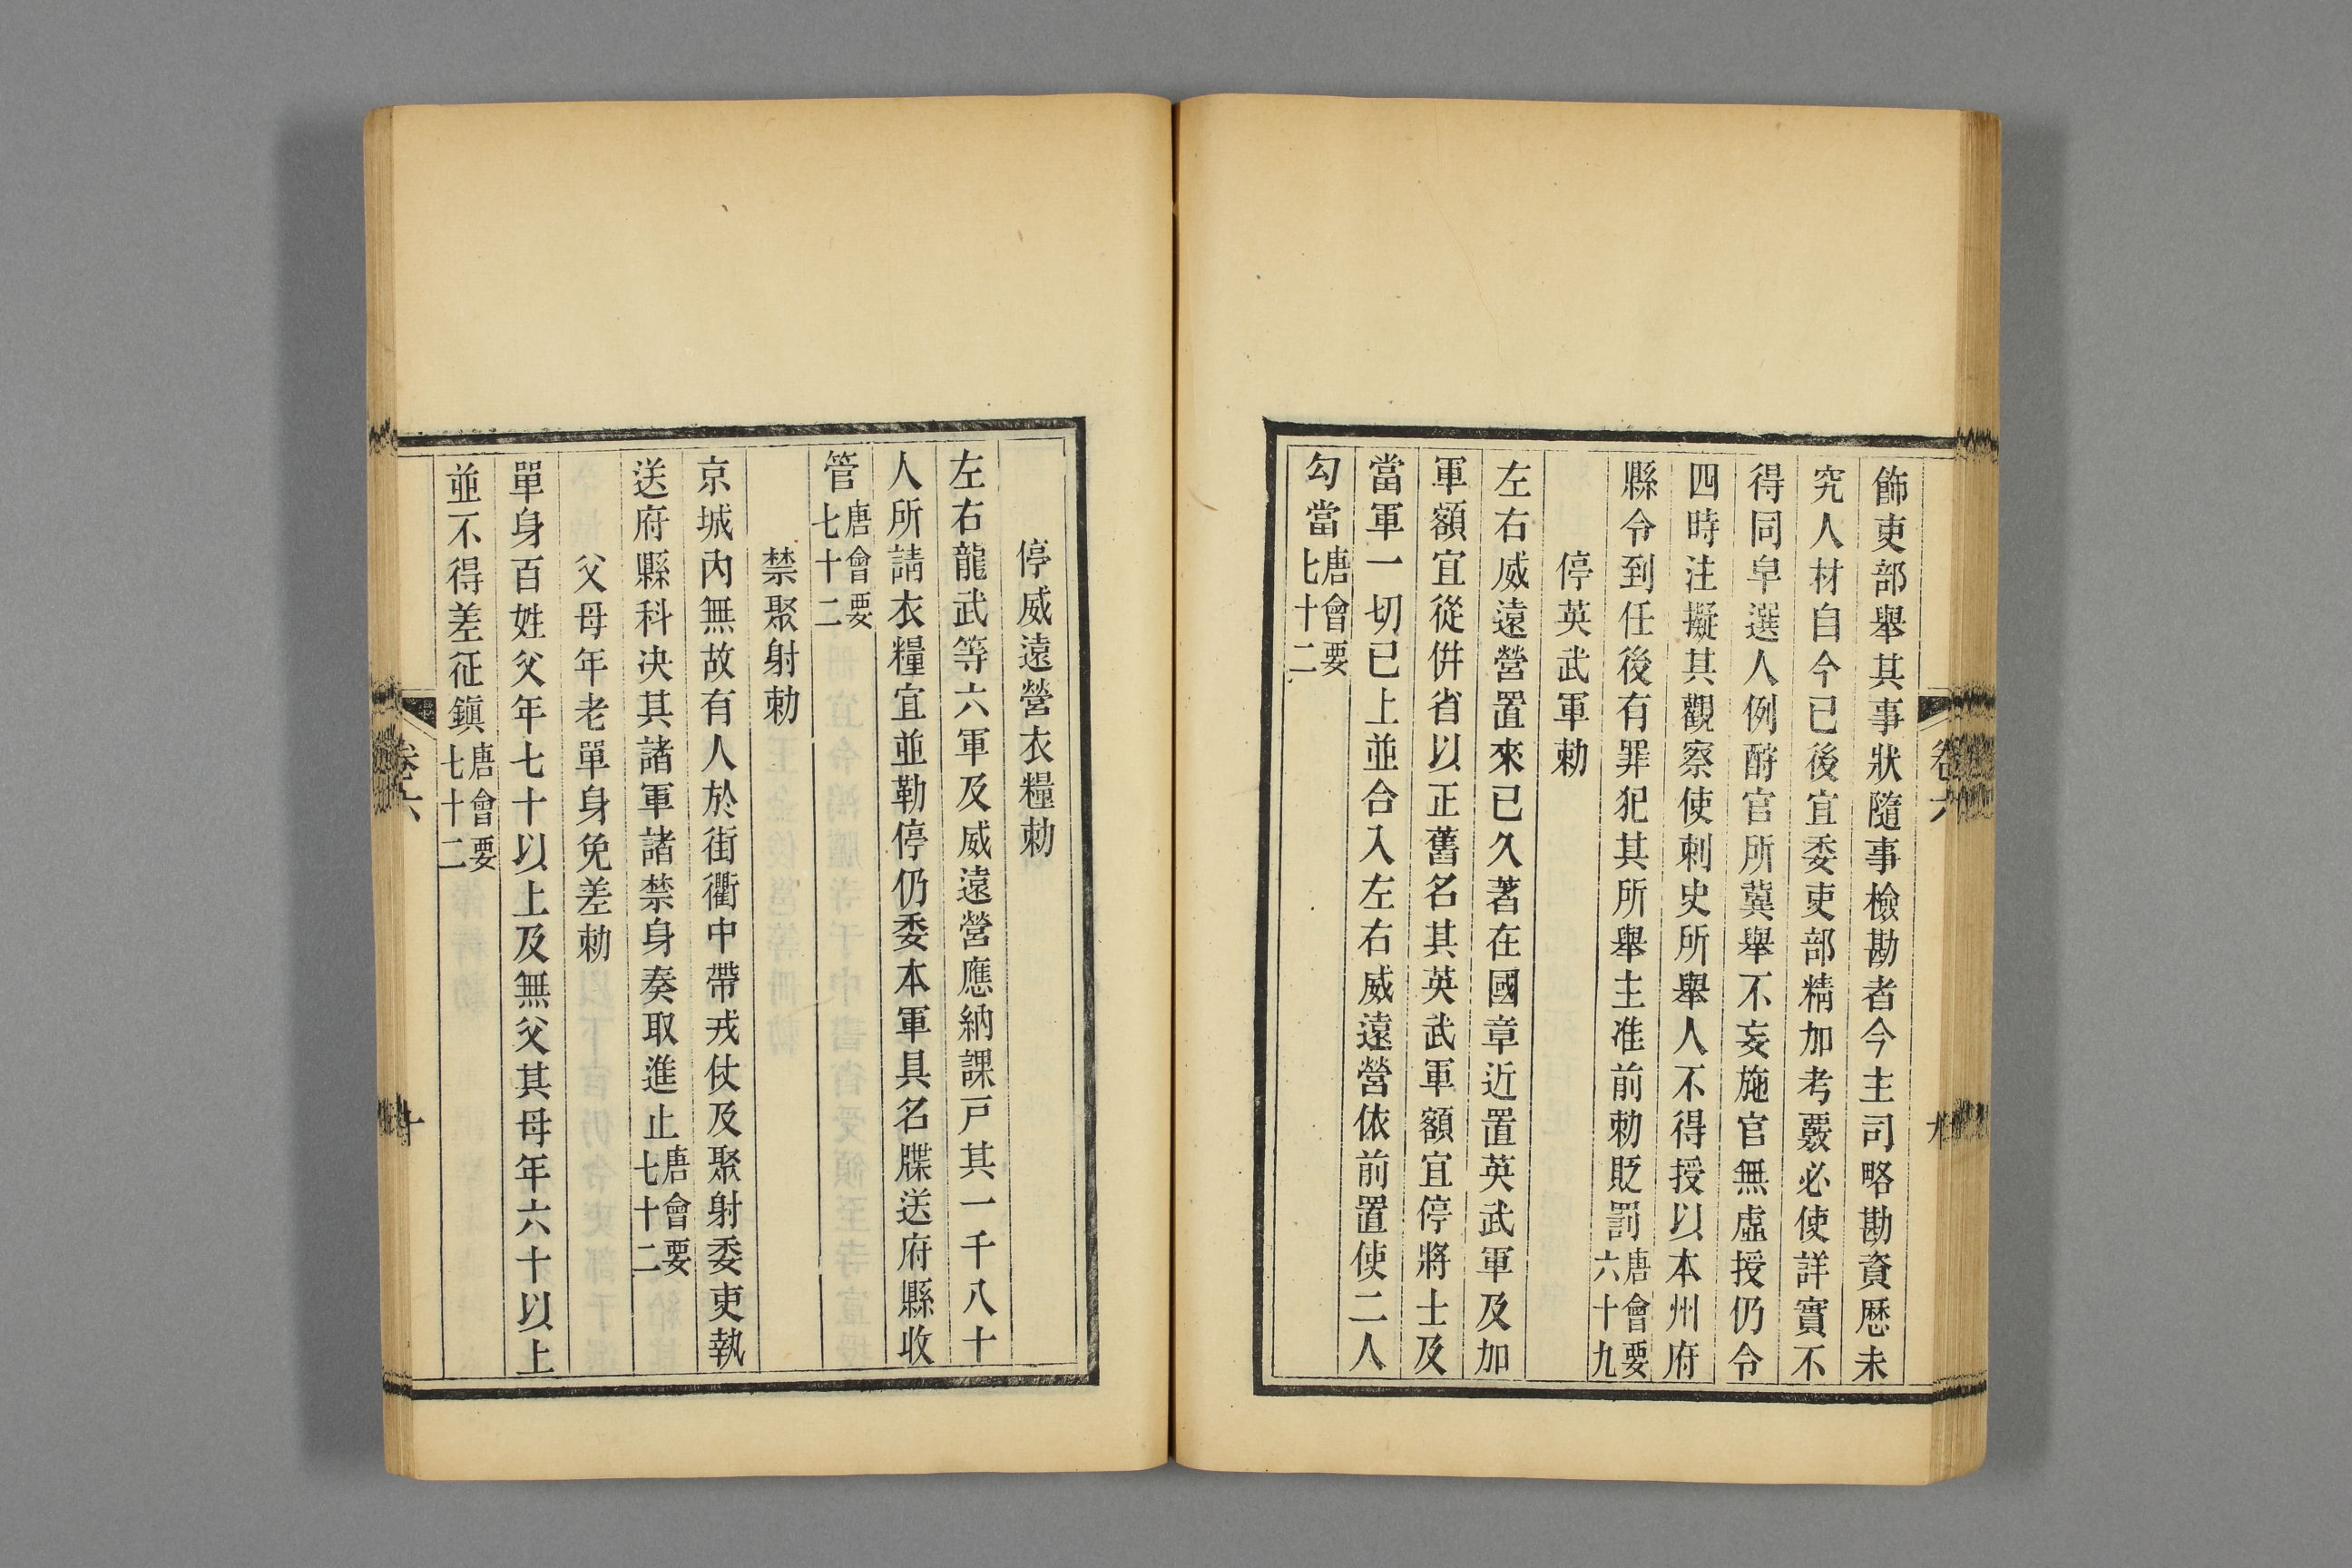 飾吏部舉其事狀隨事檢勘者今主司略勘資歷未
究人材自今已後宜委吏部精加考覈必使詳實不
得同皁選人例酧官所冀舉不妄施官無虛授仍令
四時注擬其觀察使刺史所舉人不得授以本州府
縣令到任後有罪犯其所舉主准前勅貶罰唐會要六十九
停英武軍勅
左右威遠營置來已久著在國章近置英武軍及加
軍額宜從倂省以正舊名其英武軍額宜停將士及
當軍一切已上並合入左右威遠營依前置使二人
勾當唐會要七十二
停威遠營衣糧勅
左右龍武等六軍及威遠營應納課戸其一千八十
人所請衣糧宜並勒停仍委本軍具名牒送府縣收
管唐會要七十二
禁聚射勅
京城內無故有人於街衢中帶戎仗及聚射委吏執
送府縣科决其諸軍諸禁身奏取進止唐會要七十二
父母年老單身免差勅
單身百姓父年七十以上及無父其母年六十以上
並不得差征鎭唐會要七十二
卷六
十